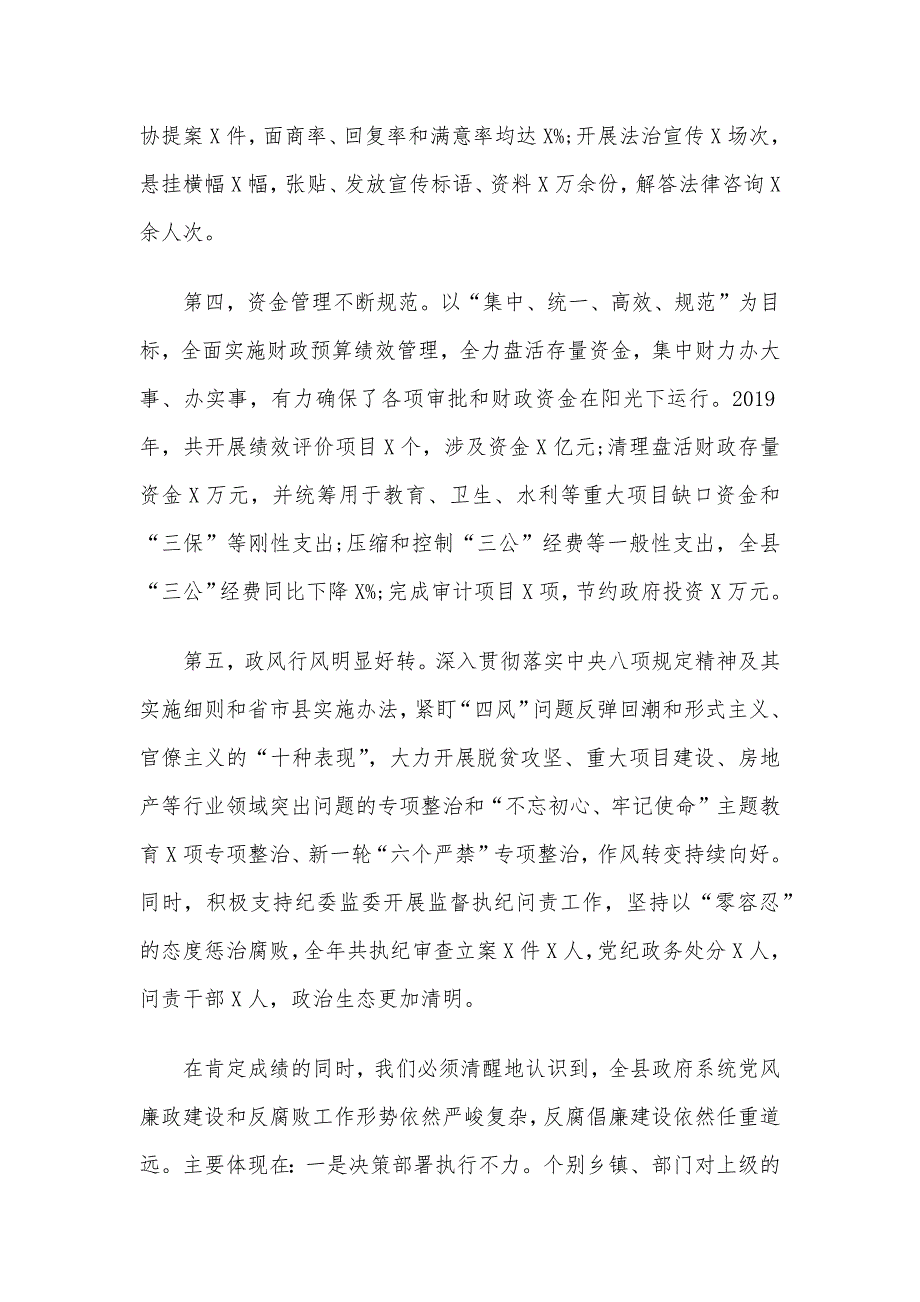 协提案 X 件，面商率、回复率和满意率均达 X%;开展法治宣传 X 场次，
悬挂横幅 X 幅，张贴、发放宣传标语、资料 X 万余份，解答法律咨询 X
余人次。
第四，资金管理不断规范。以“集中、统一、高效、规范”为目
标，全面实施财政预算绩效管理，全力盘活存量资金，集中财力办大
事、办实事，有力确保了各项审批和财政资金在阳光下运行。2019
年，共开展绩效评价项目 X 个，涉及资金 X 亿元;清理盘活财政存量
资金 X 万元，并统筹用于教育、卫生、水利等重大项目缺口资金和
“三保”等刚性支出;压缩和控制“三公”经费等一般性支出，全县
“三公”经费同比下降 X%;完成审计项目 X 项，节约政府投资 X 万元。
第五，政风行风明显好转。深入贯彻落实中央八项规定精神及其
实施细则和省市县实施办法，紧盯“四风”问题反弹回潮和形式主义、
官僚主义的“十种表现”，大力开展脱贫攻坚、重大项目建设、房地
产等行业领域突出问题的专项整治和“不忘初心、牢记使命”主题教
育 X 项专项整治、新一轮“六个严禁”专项整治，作风转变持续向好。
同时，积极支持纪委监委开展监督执纪问责工作，坚持以“零容忍”
的态度惩治腐败，全年共执纪审查立案 X 件 X 人，党纪政务处分 X 人，
问责干部 X 人，政治生态更加清明。
在肯定成绩的同时，我们必须清醒地认识到，全县政府系统党风
廉政建设和反腐败工作形势依然严峻复杂，反腐倡廉建设依然任重道
远。主要体现在：一是决策部署执行不力。个别乡镇、部门对上级的